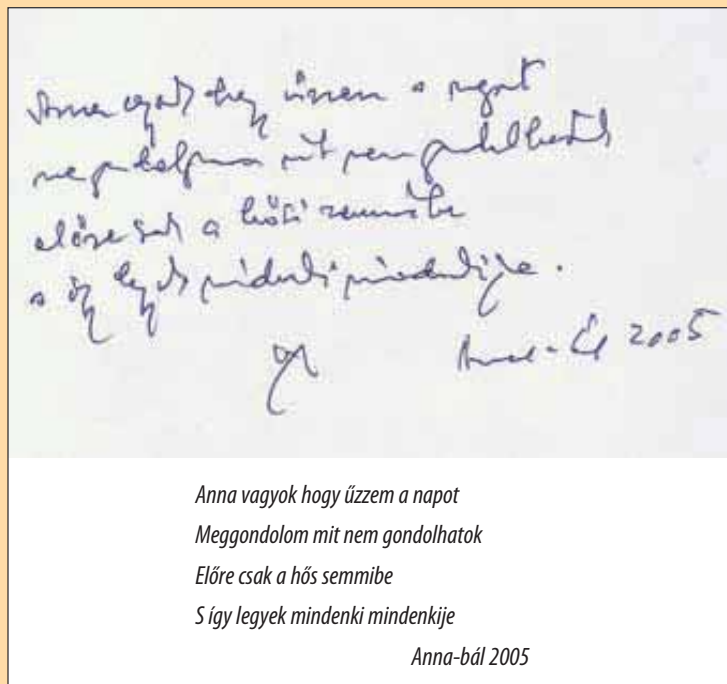 Anna vagyok hogy űzzem a napot
meggondolom mit nem gondolhatok
előre csak a hősi semmibe
s így legyek mindenki mindenkije.
Anna-bál 2005
Anna vagyok hogy űzzem a napot
Meggondolom mit nem gondolhatok
Előre csak a hős semmibe
S így legyek mindenki mindenkije
Anna-bál 2005